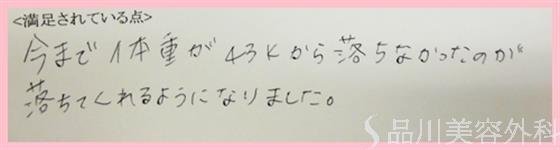 <満足されている点>
今まで体重が43Kから落ちなかったのが
落ちてくれるようになりました。
品川美容外科